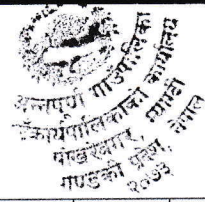 अन्नपूर्ण गाउँपालिका
गाउँ कार्यपालिकाको कार्यालय
पोखरेबगर, म्याग्दी
गण्डकी प्रदेश, नेपाल
२०७३